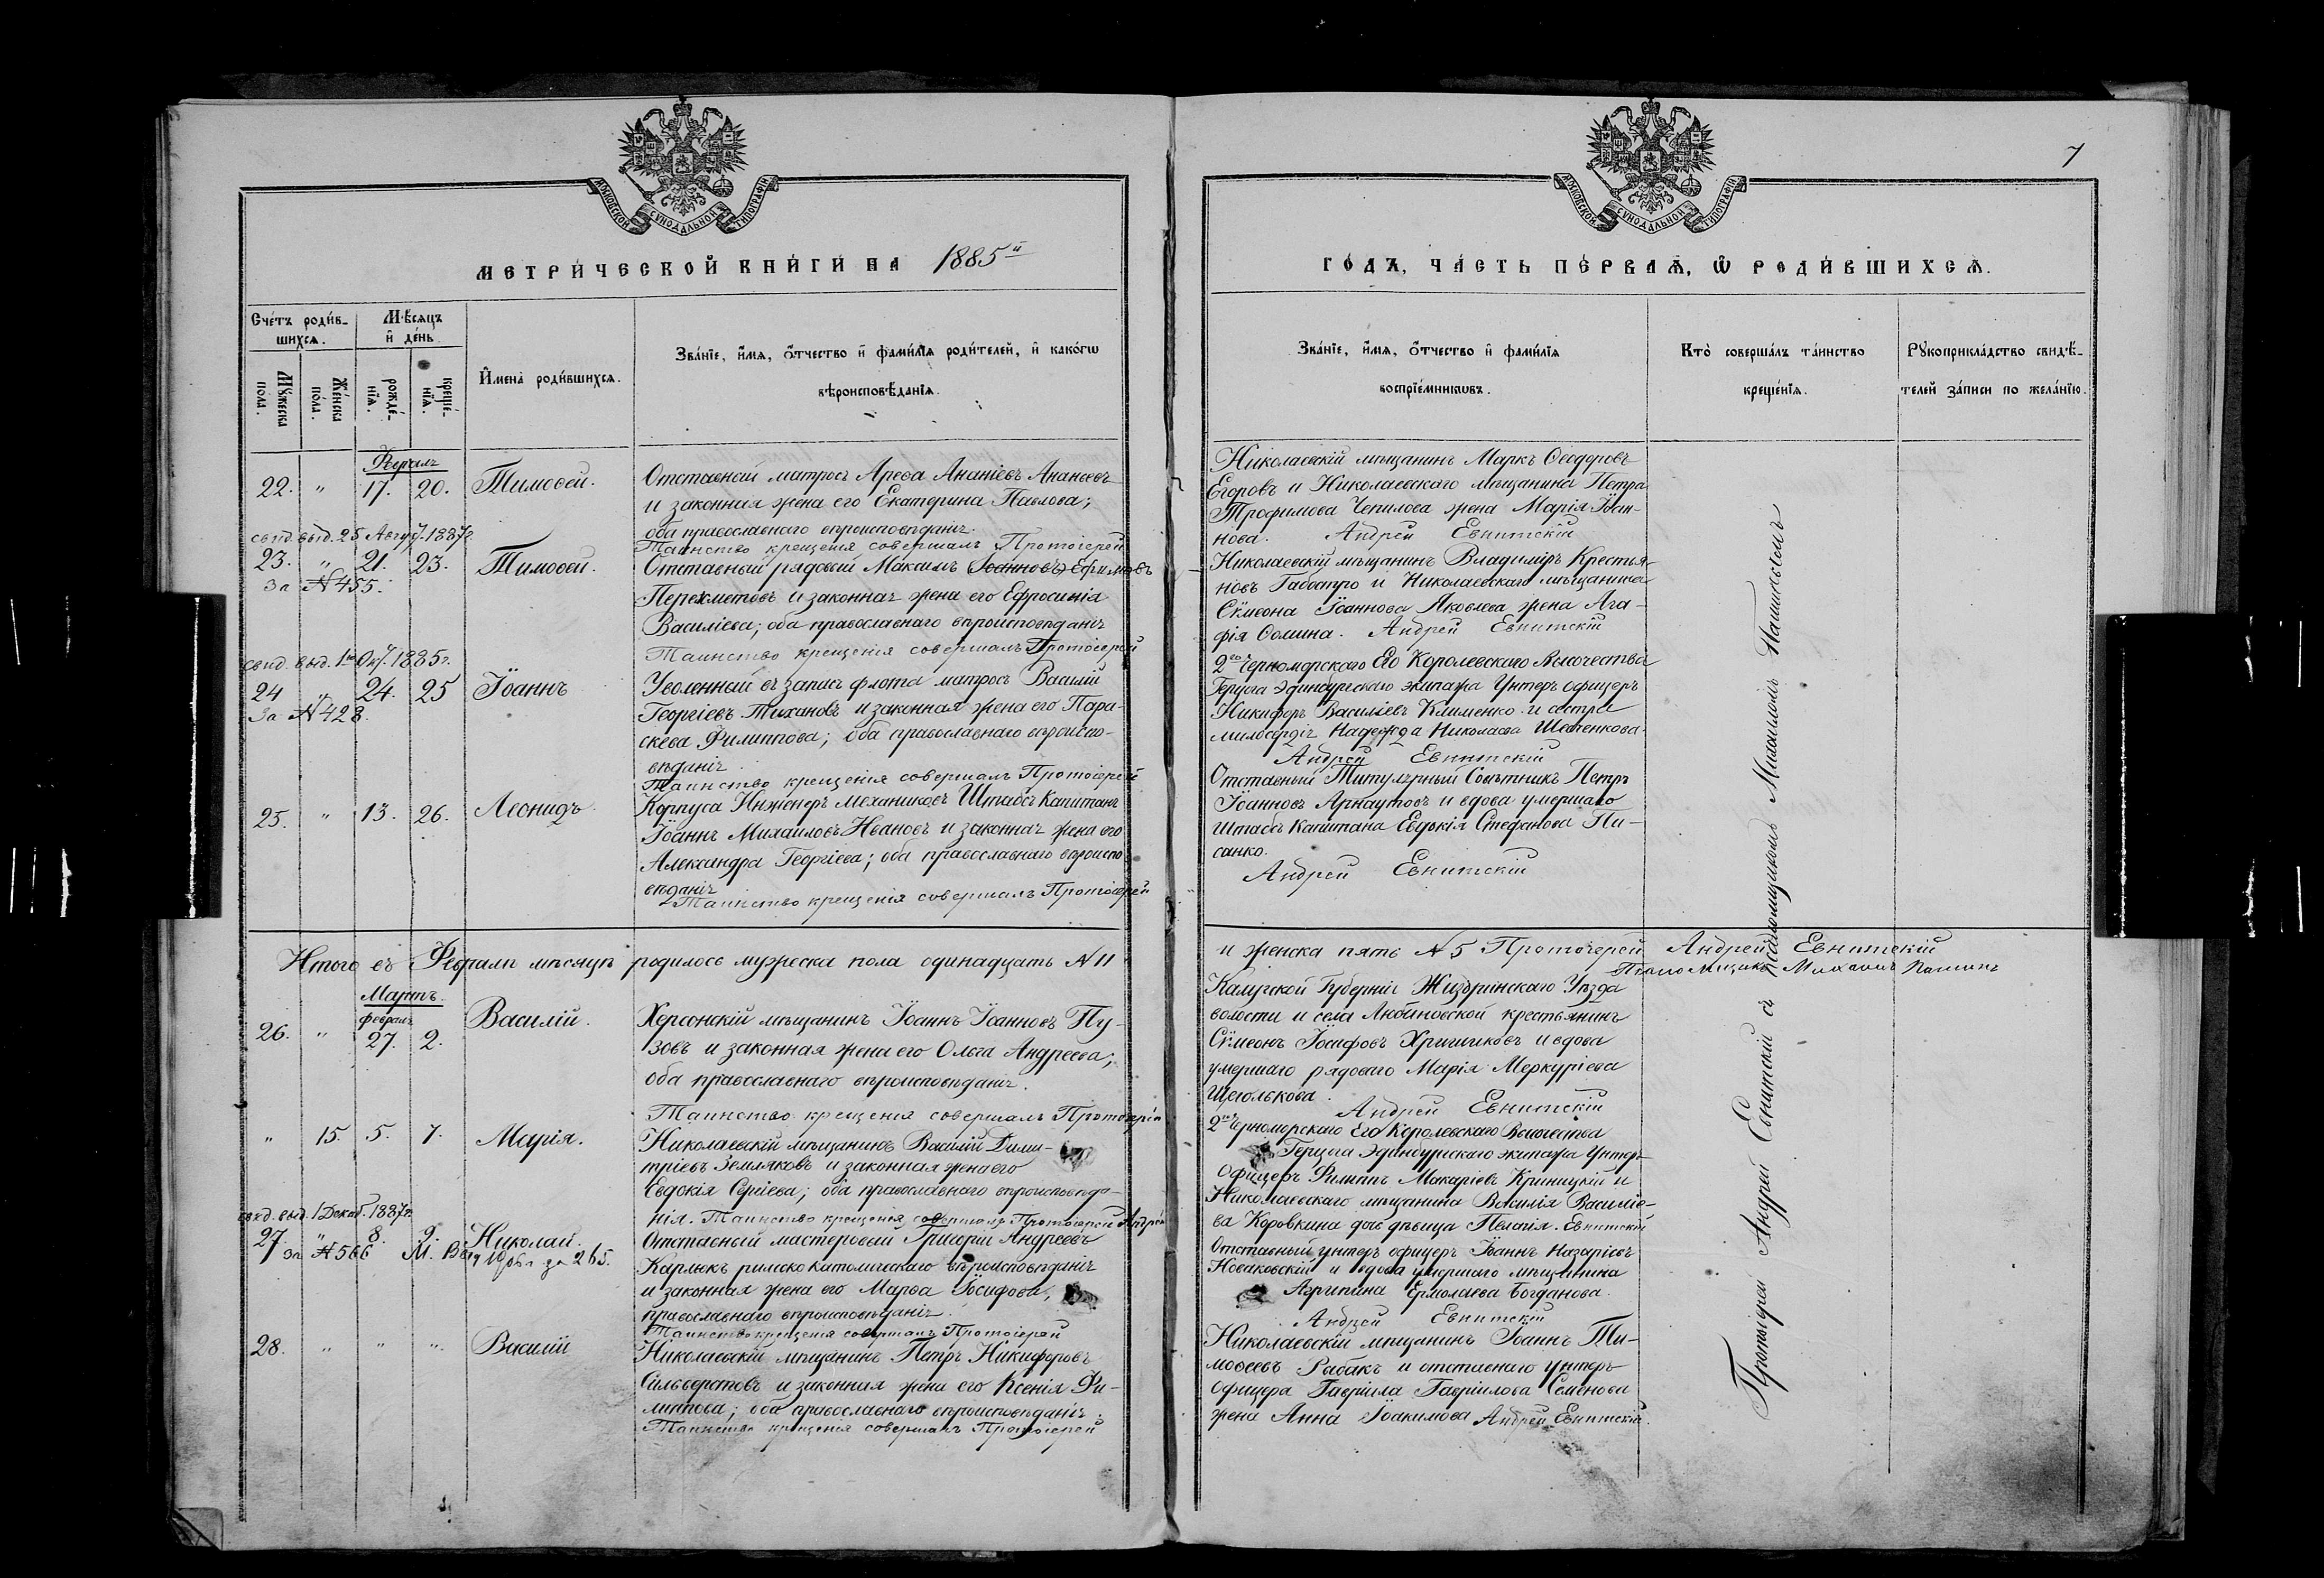 МОСКОВСКОЙ СѴНОДАЛЬНОЙ ТИПОГРАФІИ
МЕТРИ́ЧЕСКОЙ КНИ́ГИ НА 1885й
Сче́тъ роди́в-
шихсѧ.
Мѣ́сяцъ
и҆ де́нь
Мꙋ́жеска
по́ла.
Же́нска
по́ла.
рожде́-
нїѧ.
креще́-
нїѧ.
И҆мена̀ роди́вшихсѧ.
Зва́нїе, и҆́мѧ, ѻ҆́тчество и҆ фами́лїѧ роди́телей, и҆ како́гѡ
вѣроисповѣ́данїѧ.
Февраль
22. " 17. 20. Тимоѳей.
Отставный матросъ Арефа Ананіевъ Ананьевъ
и законная жена его Екатерина Павлова;
оба православнаго вѣроисповѣданія.
Таинство крещенія совершалъ Протоіерей
свид. выд. 25 Август. 1887г.
23. " 21. 23. Тимоѳей.
за №455.
Отставный рядовый Максимъ (Іоанновъ) Ефимовъ
Перекметовъ и законная жена его Ефросинія
Василіева; оба православнаго вѣроисповѣданія
Таинство крещенія совершалъ Протоіерей
свид. выд. 1го Окт. 1885г.
24 " 24. 25 Іоаннъ
за №428.
Уволенный въ запасъ флота матросъ Василій
Георгіевъ Тихановъ и законная жена его Пара-
скева Филиппова; оба православнаго вѣроиспо-
вѣданія.
Таинство крещенія совершалъ Протоіерей
25. " 13. 26. Леонидъ.
Корпуса Инженеръ Механиковъ Штабсъ Капитанъ
Іоаннъ Михаиловъ Ивановъ и законная жена его
Александра Георгіева; оба православнаго вѣроиспо-
вѣданія
Таинство крещенія совершалъ Протоіерей
Итого въ Февралѣ мѣсяцѣ родилось мужеска пола одинадцать №11
Мартъ.
февраль
26. " 27. 2. Василій.
Херсонскій мѣщанинъ Іоаннъ Іоанновъ Пу-
зовъ и законная жена его Ольга Андреева;
оба православнаго вѣроисповѣданія.
Таинство крещенія совершалъ Протоіерей
" 15. 5. 7. Марія.
Николаевскій мѣщанинъ Василій Дими-
тріевъ Земляковъ и законная жена его
Евдокія Сергіева; оба православнаго вѣроисповѣда-
нія. Таинство крещенія совершалъ Протоіерей Андрей
свид. выд. 1 Декаб. 1887г.
27. " 8. 9. Николай.
за №566 М. за 265.
Отставный мастеровый Григорій Андреевъ
Карлюкъ римско католическаго вѣроисповѣданія
и законная жена его Марѳа Іосифова,
православнаго вѣроисповѣданія.
Таинство крещенія совершалъ Протоіерей
28. " " " Василій
Николаевскій мѣщанинъ Петръ Никифоровъ
Сильверстовъ и законная жена его Ксенія Фи-
липпова; оба православнаго вѣроисповѣданія.
Таинство крещенія совершалъ Протоіерей
7
МОСКОВСКОЙ СѴНОДАЛЬНОЙ ТИПОГРАФІИ
ГО́ДЪ, ЧА́СТЬ ПЕ́РВАѦ, Ѡ҆ РОДИ́ВШИХСѦ.
Зва́нїе, и҆́мѧ, ѻ҆́тчество и҆ фами́лїѧ
воспрїе́мникѡвъ.
Кто̀ соверша́лъ та́инство
креще́нїѧ.
Рꙋкоприкла́дство свидѣ́-
телей за́писи по жела́нїю.
Николаевскій мѣщанинъ Маркъ Ѳеодоровъ
Егоровъ и Николаевскаго мѣщанина Петра
Трофимова Чепилова жена Марія Іоан-
нова. Андрей Евнитскій
Николаевскій мѣщанинъ Владиміръ Крестья-
новъ и Николаевскаго мѣщанина
Сѵмеона Іоаннова Яковлева жена Ага-
фія Ѳомина. Андрей Евнитскій
2го Черноморскаго Его Королевскаго Высочества
Герцога Эдинбургскаго экипажа Унтеръ офицеръ
Никифоръ Василіевъ Клименко и сестра
милосердія Надежда Николаева
Андрей Евнитскій
Отставный Титулярный Совѣтникъ Петръ
Іоанновъ Арнаутовъ и вдова умершаго
Штабсъ Капитана Евдокія Стефанова Пи-
санко.
Андрей Евнитскій
и женска пять №5 Протоіерей Андрей Евнитскій
Псаломщикъ Михаилъ
Калужской Губерніи Жиздринскаго Уѣзда
волости и села Любиновской крестьянинъ
Сѵмеонъ Іосифовъ Хришиковъ и вдова
умершаго рядоваго Марія Меркуріева
Щеголькова.
Андрей Евнитскій
2го Черноморскаго Его Королевскаго Высочества
Герцога Эдинбургскаго экипажа Унтеръ-
Офицеръ Филиппъ Макаріевъ Криницкій и
Николаевскаго мѣщанина Василія Василіе-
ва Коровкина дочь дѣвица Пелагія. Евнитскій
Отставный унтеръ офицеръ Іоаннъ Назаріевъ
Новаковскій и вдова умершаго мѣщанина
Агрипина Ермолаева Богданова.
Андрей Евнитскій
Николаевскій мѣщанинъ Іоаннъ Ти-
моѳеевъ Рыбакъ и отставнаго унтеръ
офицера Гавріила Гавріилова Семенова
жена Анна Іоакимова Андрей Евнитскій.
Протоіерей Андрей Евнитскій съ псаломщикомъ Михаиломъ